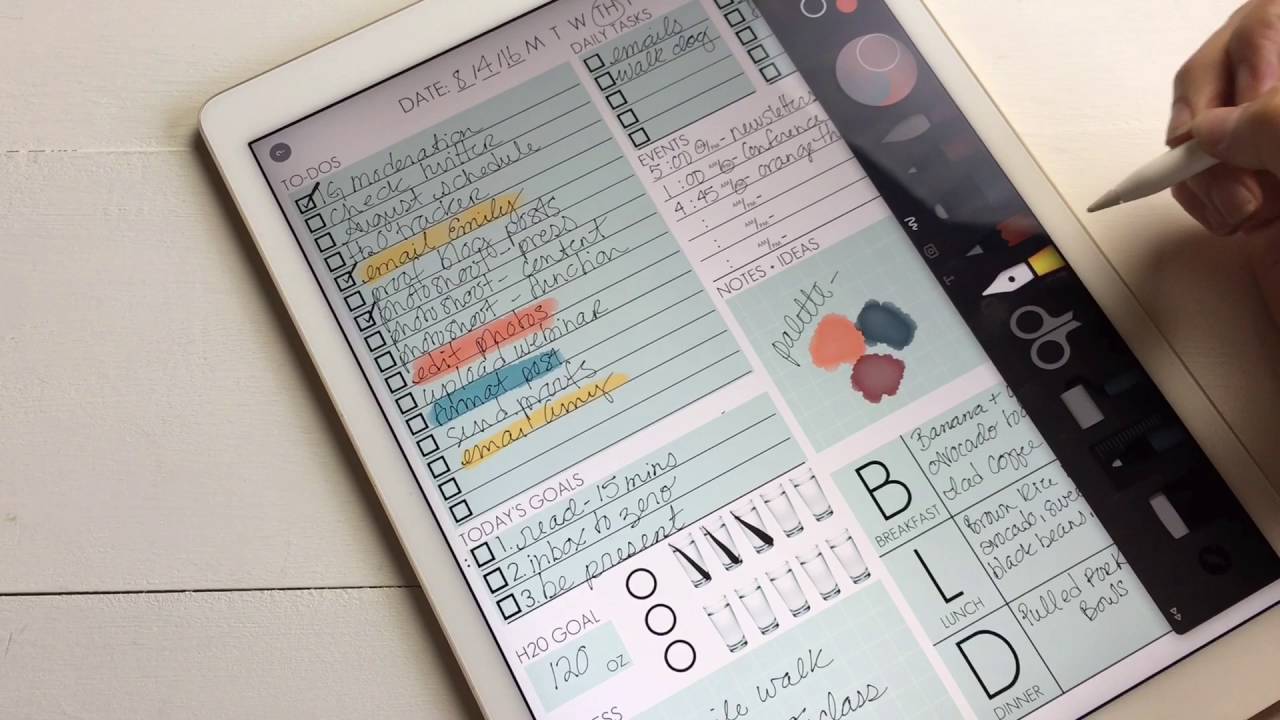 DATE: 8/4/16 M T W TH
TO-DOS
IG moderation
check twitter
August schedule
H20 tracker
email Emily
blog posts
photoshoot - press
photoshoot - content
photoshoot - function
edit photos
upload webinar
format post
send
email amy
TODAY'S GOALS
1. read - 15 mins
2. inbox to zero
3. be present
H20 GOAL
120 OZ
DAILY TASKS
emails
walk dog
EVENTS
5:00 AM/PM - newsletters
1:00 AM/PM - conference
4:45 AM/PM - orange
: AM/PM -
: AM/PM -
: AM/PM -
NOTES + IDEAS
palette -
B
BREAKFAST
Banana +
Avocado
Iced coffee
L
LUNCH
Brown Rice
avocado,
black beans,
D
DINNER
Pulled Pork
Bowls
walk
class